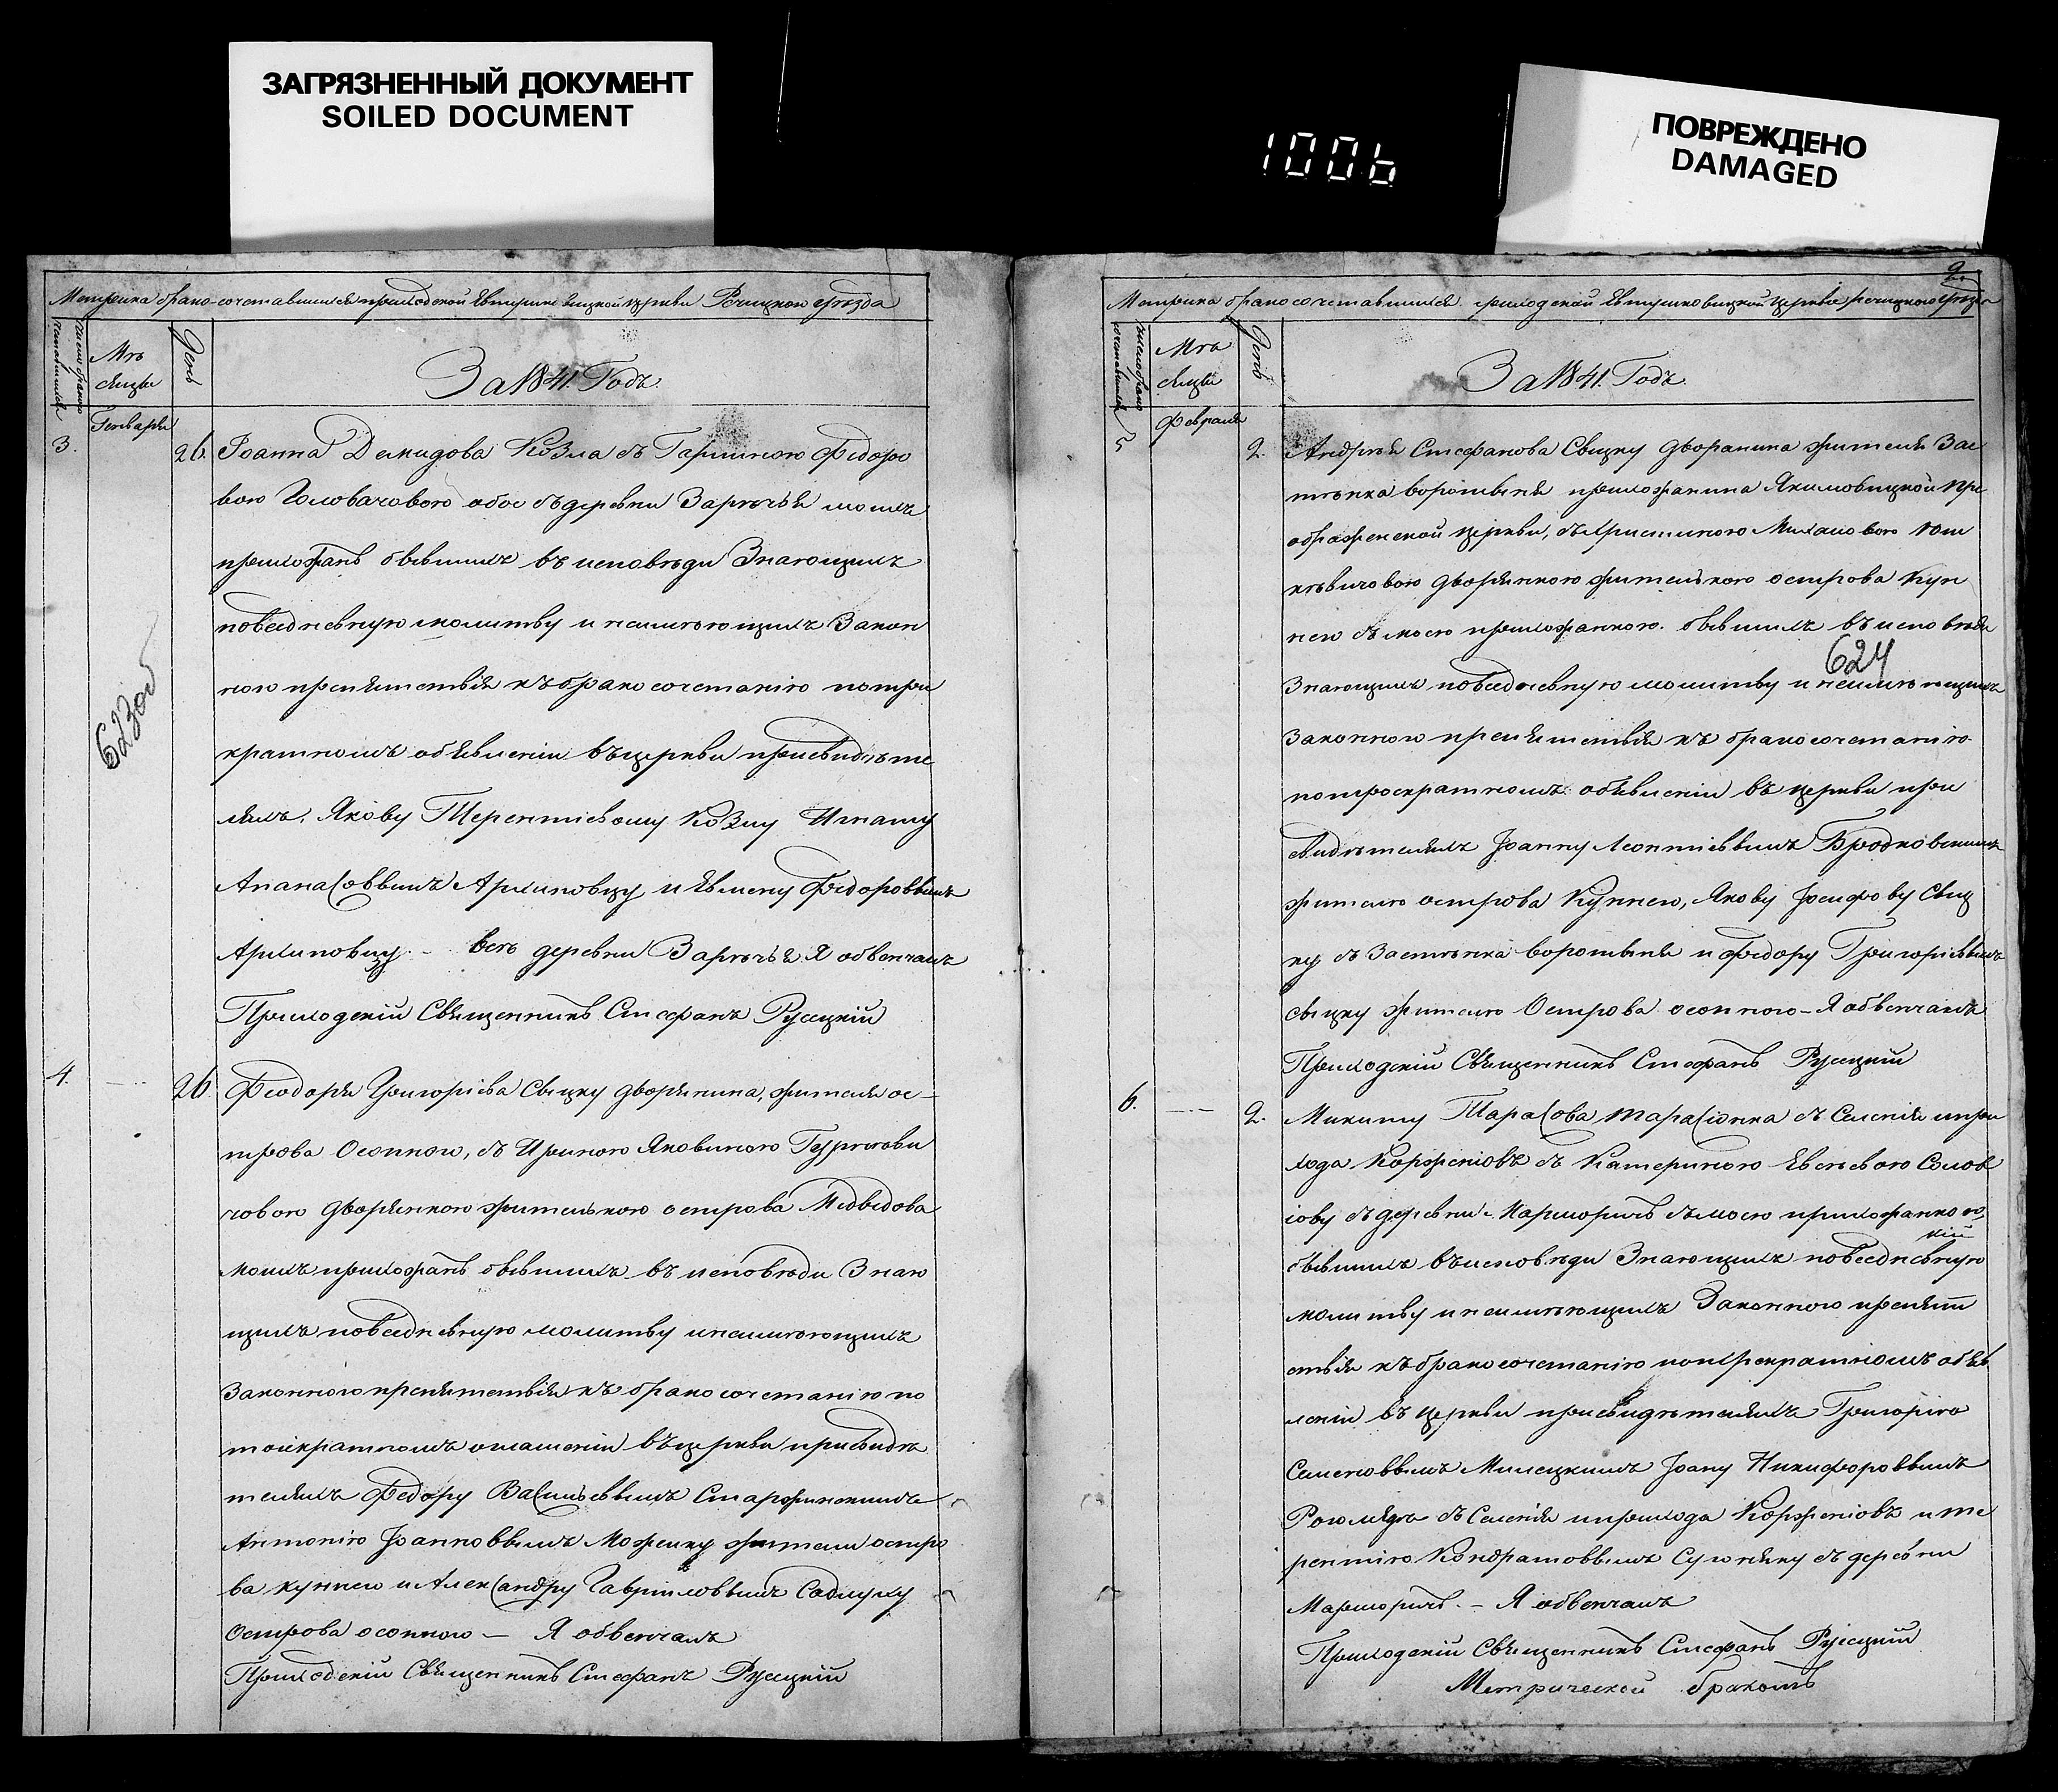 ЗАГРЯЗНЕННЫЙ ДОКУМЕНТ
SOILED DOCUMENT
1006
ПОВРЕЖДЕНО
DAMAGED
Метрика брако-сочетавшихся приходской церкви Речицкого уѣзда
Мѣ
сяцы
День
За 1841. Годъ
Генваря
3.
26.
Іоанна Демидова Козла съ Федоро
вою Головачовою обое съ деревни Зарѣчья моихъ
прихожанъ бывшихъ въ исповѣди Знающихъ
повседневную молитву и неимѣющихъ Закон
ного препятствія къ бракосочетанію потри
кратномъ объявленіи въ церкви присвидѣте
ляхъ. Якову Терентіевому Козлу Игнату
Апанасоввымъ Архиповцу и Федороввымъ
Архиповцу – всѣ деревни Зарѣчья Я обвенчалъ
Приходскій Священникъ Стефанъ Русецкій
623об
4.
26.
Феодоря Григоріева Свицку дворянина, жителя ос-
трова Осопного, съ Ириною Яковиною
човою дворянкою жителькою острова Медведова
моихъ прихожанъ бывшихъ въ исповѣди Знаю
щихъ повседневную молитву и неимѣющихъ
Законного препятствія къ бракосочетанію по
троекратномъ оглашеніи въ церкви присвидѣ
теляхъ Федору Васильеввымъ
Антонію Іоанноввымъ жители остро
ва куннего и Александру Гавріиловвымъ
Острова осопного – Я обвенчалъ
Приходскій Священникъ Стефанъ Русецкій
2.
Метрика бракосочетавшихся приходской церкви речицкого уѣзда
Мѣ
сяцы
День
За 1841. Годъ
Февраля
5
2.
Андрѣя Стефанова Свицку дворанина жителя Зас
тѣнка воротыня прихожанина Якимовицкой Пре
ображенской церкви, съ Христиною Михаловою Юш
кѣвичовою дворянкою жителькою острова Кун
него съ моею прихожанкою. бывшихъ въ исповѣди
624
Знающихъ повседневную молитву и неимѣющихъ
Законного препятствія къ бракосочетанію
потроекратномъ объявленіи въ церкви при
свидѣтеляхъ Іоанну Леонтіеввымъ Бродковскимъ
жителю острова Куннего, Якову Іосифову Свиц
ку съ Застѣнка воротыня и Федору Григоріеввымъ
свицку жителю Острова осопного – Я обвенчалъ
Приходскій Священникъ Стефанъ Русецкій
6.
2.
Микиту Тарасова Тарасіонка съ Селенія и при
хода Корженіовъ съ Катериною Евсѣевою Солов
іову съ деревни съ моею прихожанкою,
кій
бывшихъ въ исповѣди Знающихъ повседневную
молитву и неимѣющихъ Законного препят
ствія къ бракосочетанію потрекратномъ объяв
леніи въ церкви присвидѣтеляхъ Григорію
Семеноввымъ Милецкимъ Іоану Никифороввымъ
съ Селенія и прихода Корженіовъ и Те
рентію Кондратоввымъ съ деревни
– Я обвенчалъ
Приходскій Священникъ Стефанъ Русецкій
Метрической бракомъ